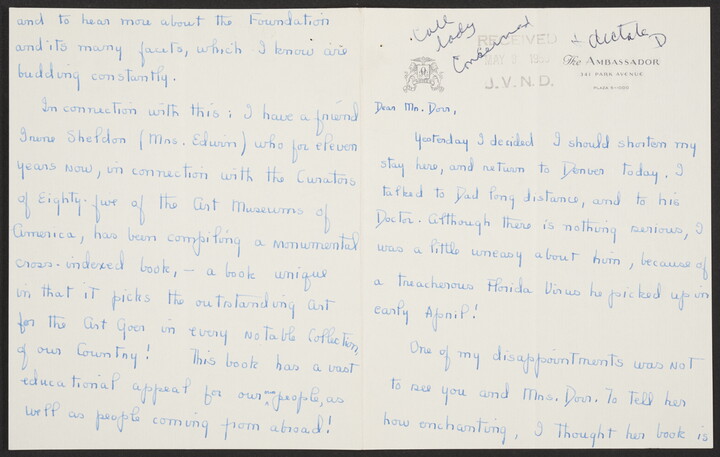 Call
Lady
Concerned
RECEIVED
MAY 2 195
J.V.N.D.
dictate D
The AMBASSADOR
341 PARK AVENUE
PLAZA 5-1000
Dear Mr. Dorr,
Yesterday I decided I should shorten my
stay here, and return to Denver today. I
talked to Dad long distance, and to his
Doctor. Although there is nothing serious, I
was a little uneasy about him, because of
a treacherous Florida Virus he picked up in
early April!
One of my disappointments was not
to see you and Mrs. Dorr. To tell her
how enchanting, I thought her book is
and to hear more about the Foundation
and its many facets, which I know are
budding constantly.
In connection with this; I have a friend
Irene Sheldon (Mrs. Edwin) who for eleven
years now, in connection with the Curators
of Eighty-five of the Art Museums of
America, has been compiling a monumental
cross-indexed book, – a book unique
in that it picks the outstanding Art
for the Art Goer in every notable Collection,
of our Country! This book has a vast
educational appeal for our people, as
well as people coming from abroad!